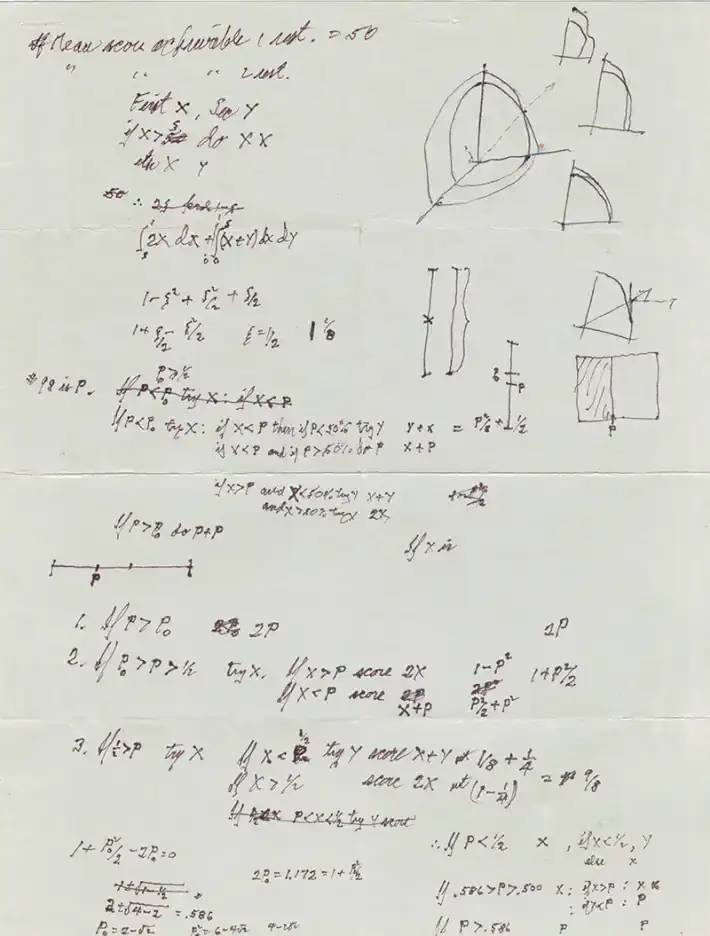 Mean score achievable 1 rest. = 50
" " " 2 rest.
First X, Sec Y
if X > ξ do X X
X Y
∴
∫2X dX + ∫∫(X+Y)dXdY
1 - ξ² + ξ²/2 + ξ/2
1 + ξ/2 - ξ²/2 ξ = 1/2 1 1/8
is P.
P>1/2
If P<P₀ try X: if X<P
If P<P₀ try X: if X<P then if P<50% try Y Y+X = P²/2 + 1/2
if X<P and if P>50% do P X+P
if X>P and X<50% try Y X+Y
and X>50% try X 2X
If P>P₀ do P+P
If X is
P
1. If P>P₀ 2P 2P
2. If P₀>P>1/2 try X. If X>P score 2X 1-P² 1+P²/2
If X<P score X+P P²/2+P²
3. If 1/2>P try X If X<1/2 try Y score X+Y 1/8 + 1/4
If X>1/2 score 2X (1-1/4) = 9/8
If P<X<1/2 try Y score
1 + P₀²/2 - 2P₀ = 0
2P₀ = 1.172 = 1 + P₀²/2
∴ If P<1/2 X, if X<1/2, Y
else X
2±√4-2 = .586
If .586>P>.500 X: if X>P: X
: if X<P: P
P₀ = 2-√2 P₀² = 6-4√2
If P>.586 P P